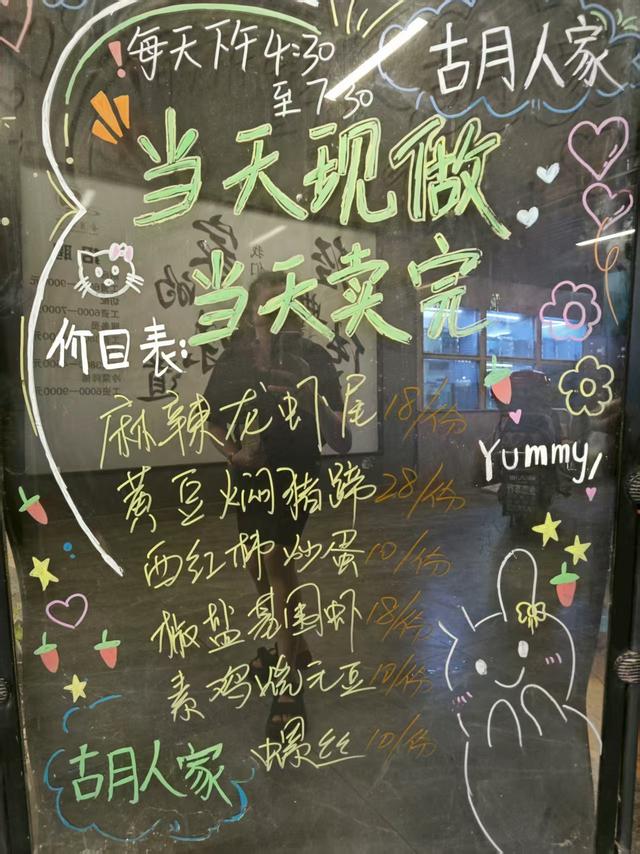 每天下午4:30
至7:30
古月人家
当天现做
当天卖完
价目表:
麻辣龙虾尾18/份
黄豆焖猪蹄28/份
Yummy
西红柿炒蛋10/份
椒盐基围虾18/份
素鸡烧元豆10/份
螺丝10/份
古月人家